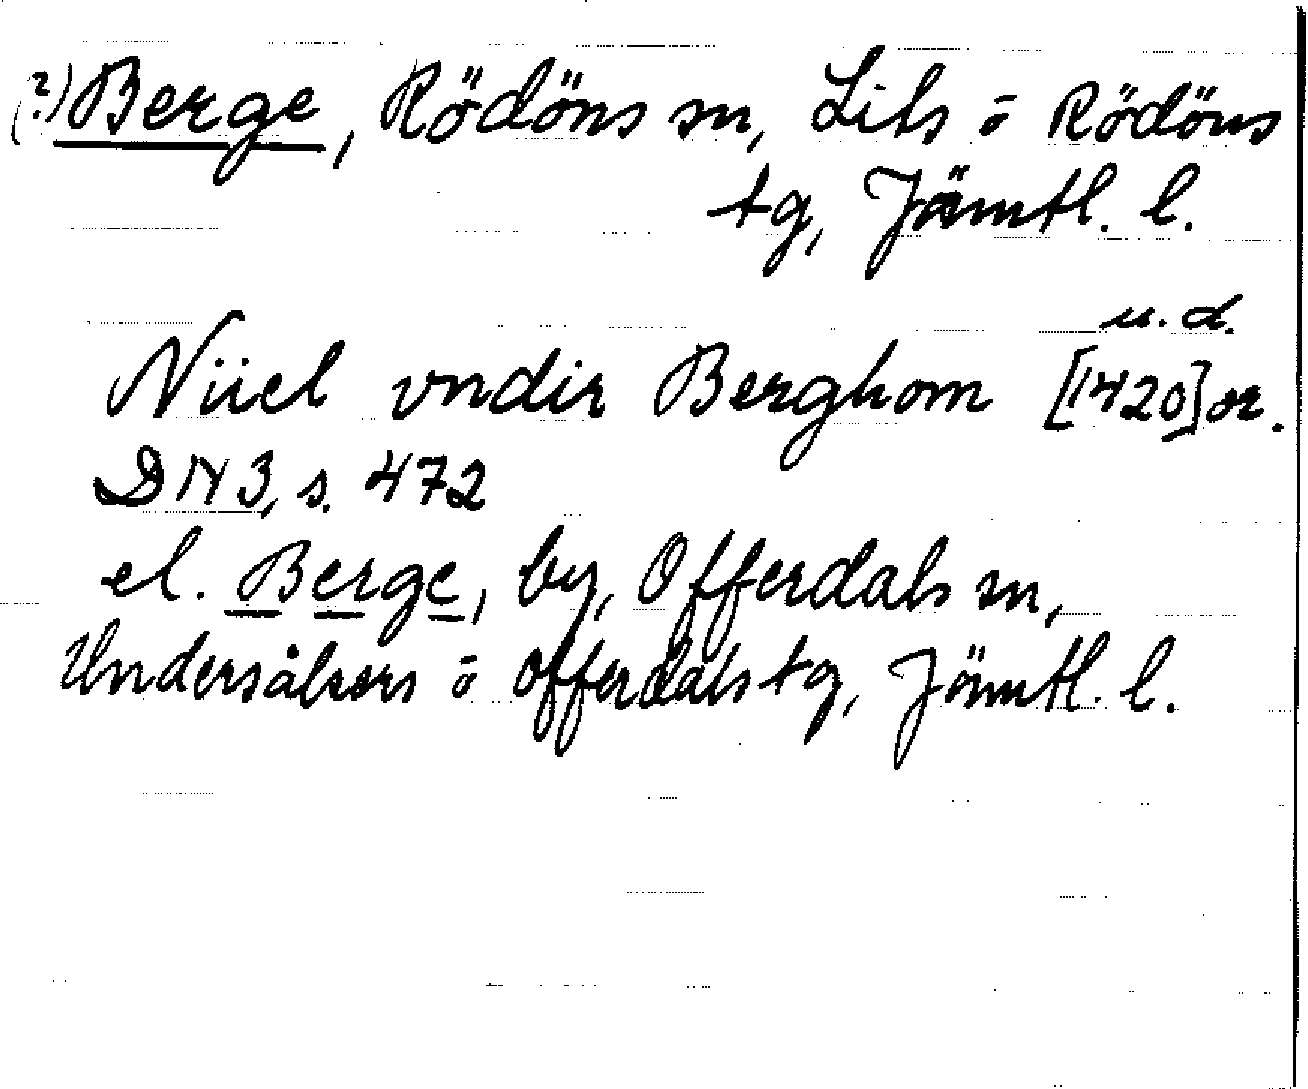 (?) Berge, Rödöns sn, Lits o Rödöns
tg, Jämtl. l.
u. d.
Niiel vndir Berghom [1420] or.
DN 3, s. 472
el. Berge, by, Offerdals sn,
Undersåkers o Offerdals tg, Jämtl. l.